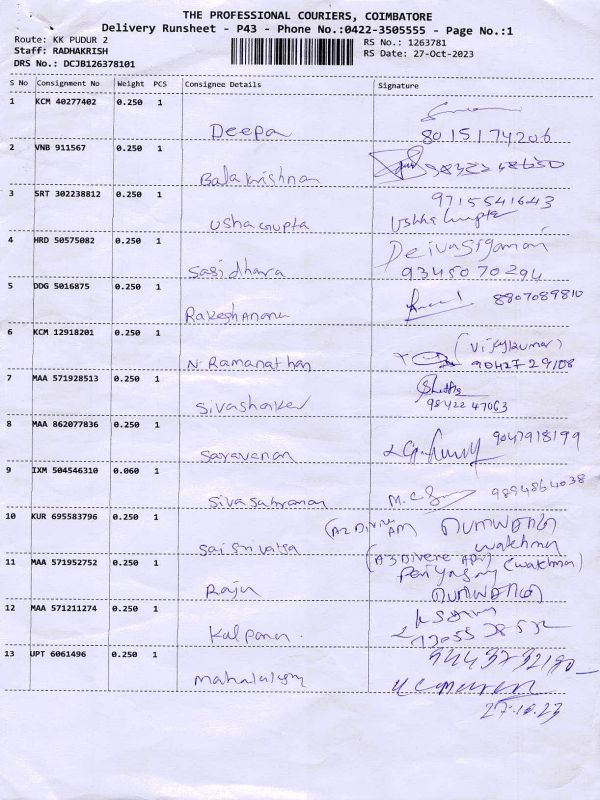 THE PROFESSIONAL COURIERS, COIMBATORE
Delivery Runsheet - P43 - Phone No.:0422-3505555 - Page No.:1
Route: KK PUDUR 2
RS No.: 1263781
Staff: RADHAKRISH
RS Date: 27-Oct-2023
DRS No.: DCJB126378101
S No Consignment No Weight PCS Consignee Details Signature
1 KCM 40277402 0.250 1
Deepa 8015174206
2 VNB 911567 0.250 1
Balakrishnan
3 SRT 302238812 0.250 1
9715541643
Usha Gupta Usha Gupta
4 HRD 50575082 0.250 1
Deivasigamani
Sasidhara 9345070294
5 DDG 5016875 0.250 1
8807089810
Rakesh Anand
6 KCM 12918201 0.250 1
(Vijaykumar)
N. Ramanathan 90427 29108
7 MAA 571928513 0.250 1
Sivashaker 98422 47063
8 MAA 862077836 0.250 1
9047918199
Saravanan
9 IXM 504546310 0.060 1
9894864038
Sivasabramanan M.C
10 KUR 695583796 0.250 1
(A2 Divine AP)
Sai Srivatsa watchman
11 MAA 571952752 0.250 1
(watchman)
Raju Periyasamy
12 MAA 571211274 0.250 1
Kalpana.
13 UPT 6061496 0.250 1
Mahalakshmi
27.10.23